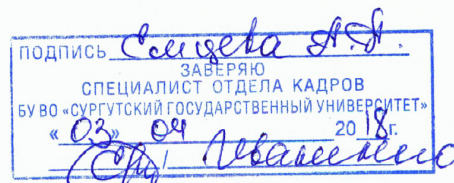 ПОДПИСЬ Емцева А.А.
ЗАВЕРЯЮ
СПЕЦИАЛИСТ ОТДЕЛА КАДРОВ
БУ ВО «СУРГУТСКИЙ ГОСУДАРСТВЕННЫЙ УНИВЕРСИТЕТ»
«03» 04 2018г.
/